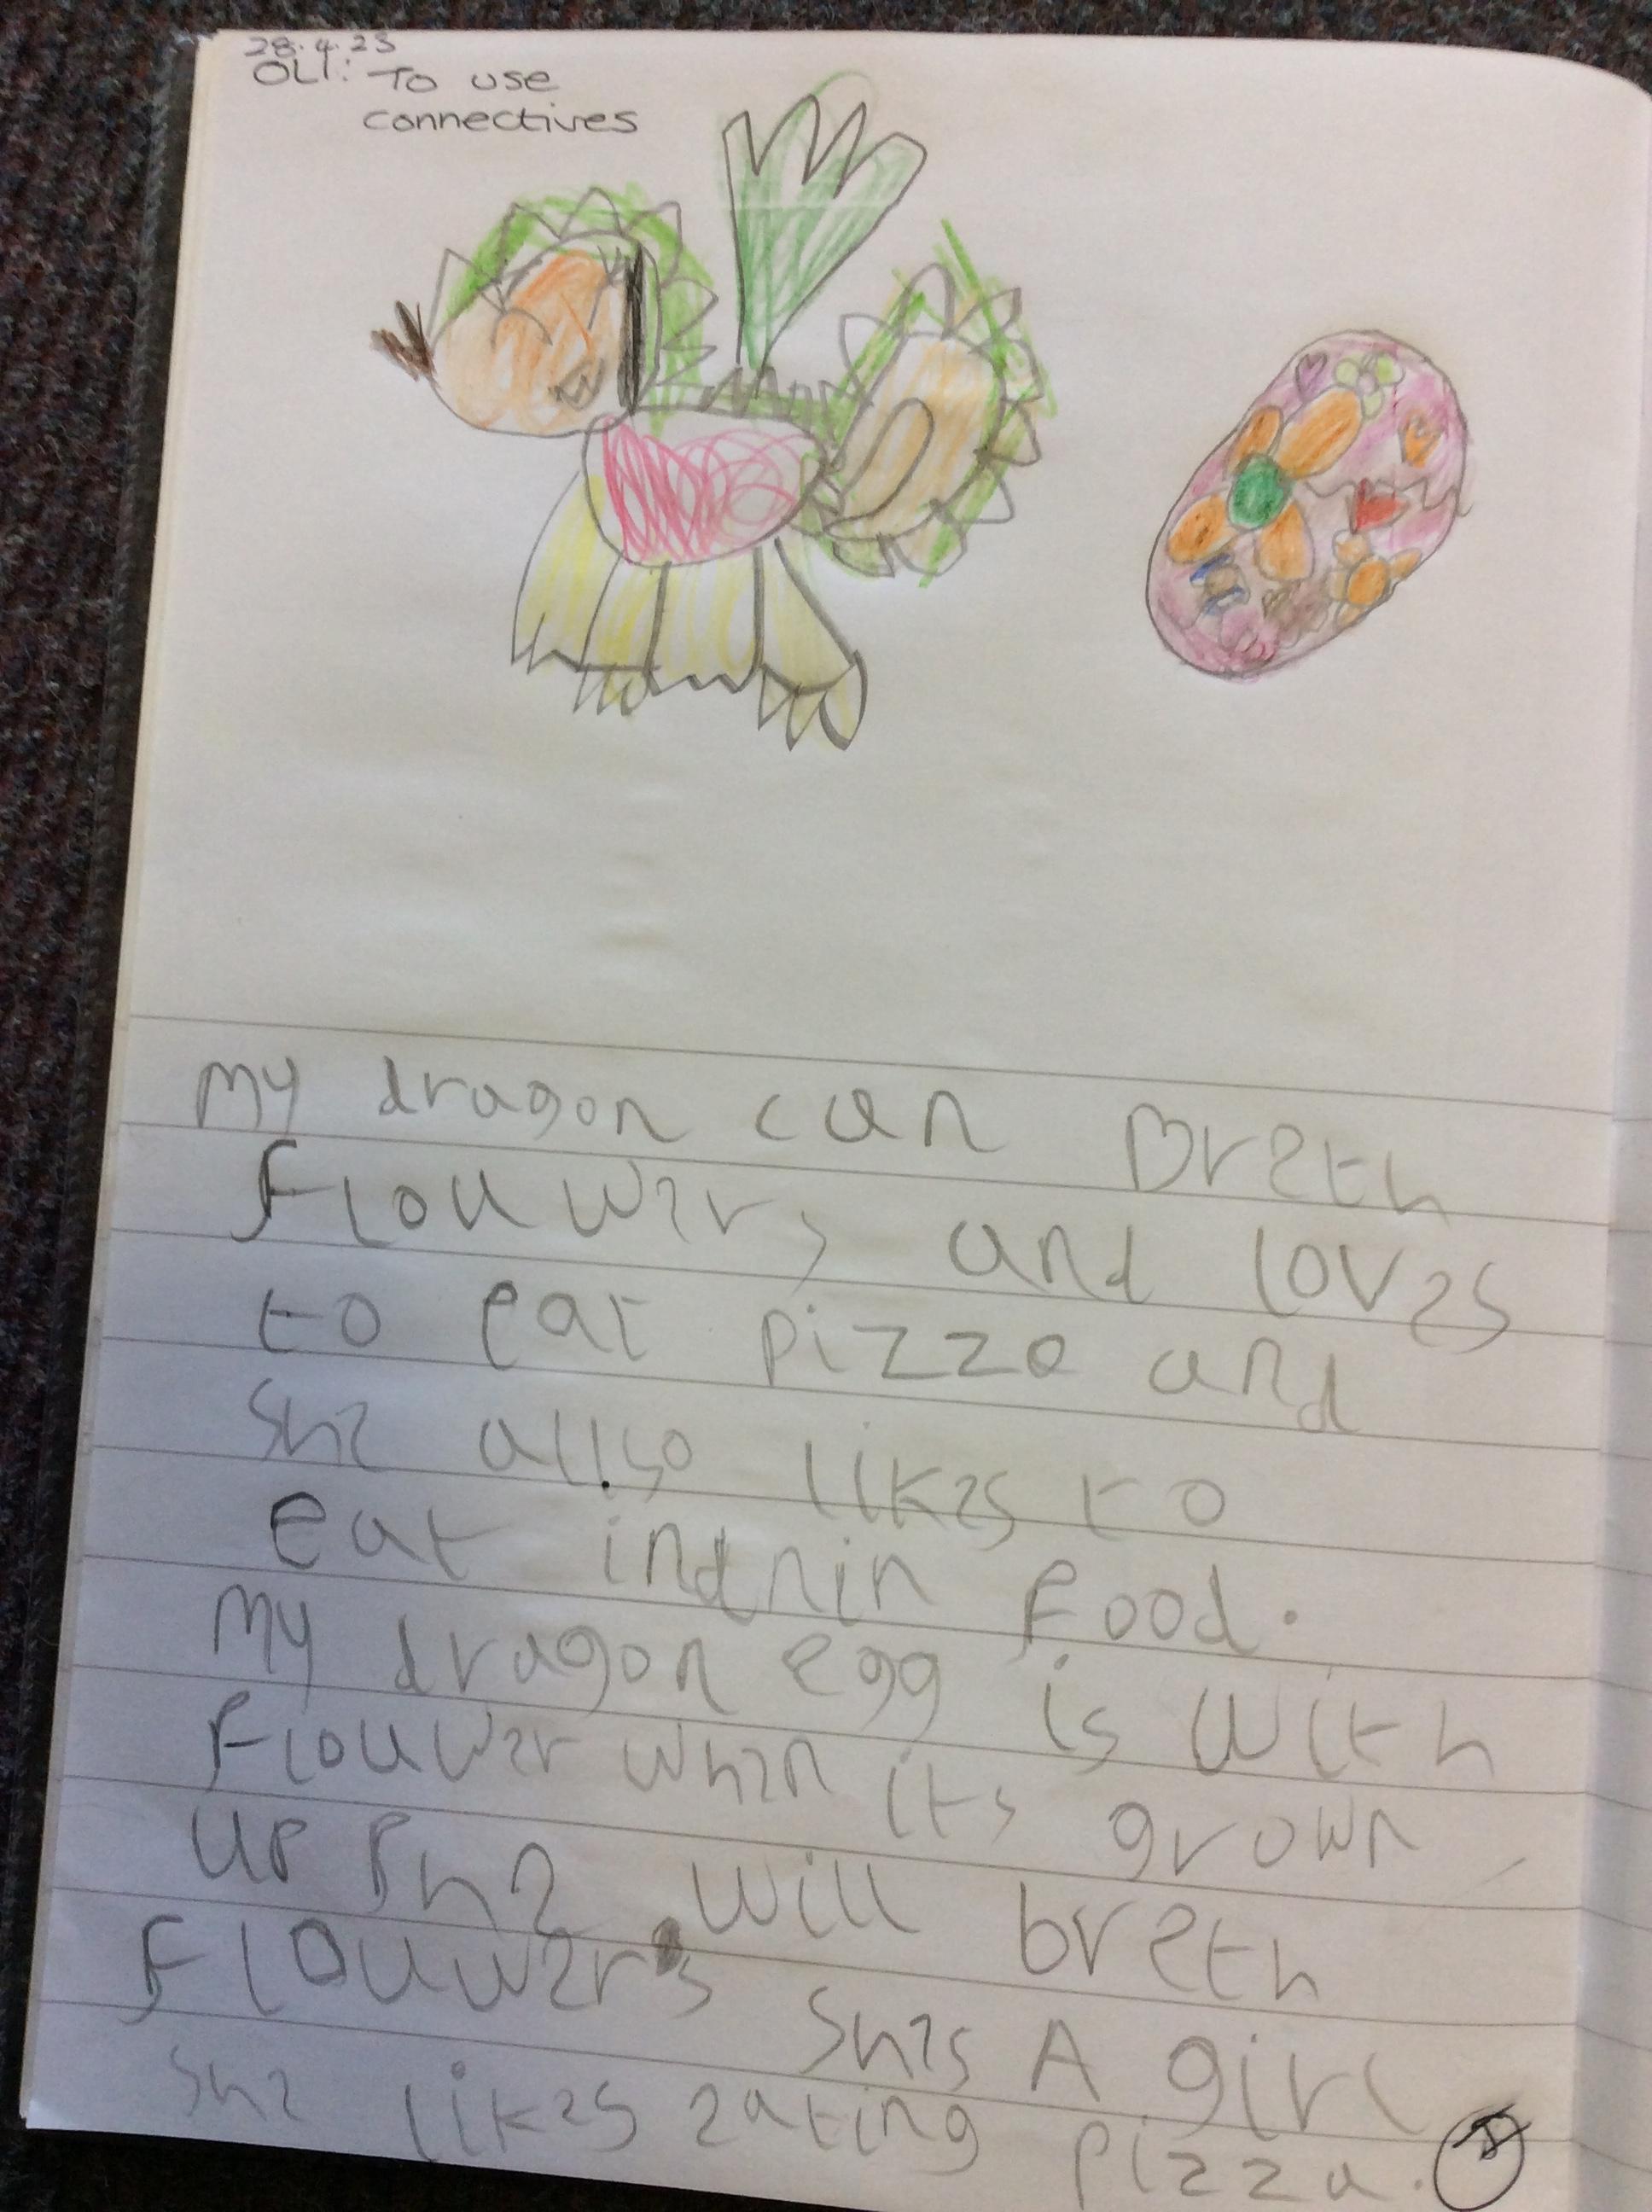 28.4.23
OLI: To use
connectives
My dragon can Breth
Flouwers and loves
to eat pizza and
She allso likes to
eat indnin food.
My dragon egg is with
flouwer when its grown
up She will breth
Flouwers Shes A girl
She likes eating pizza.
I